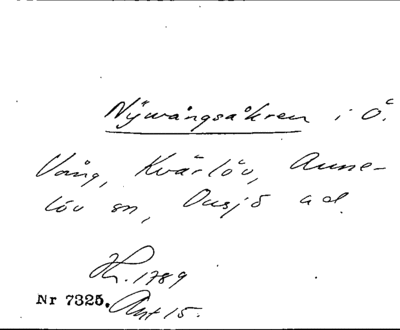 Nÿwångsåkren i Ö.
Vång, Kvärlöv, Anne-
löv sn, Onsjö hd.
Hr. 1789
Nr 7325. Akt 15.